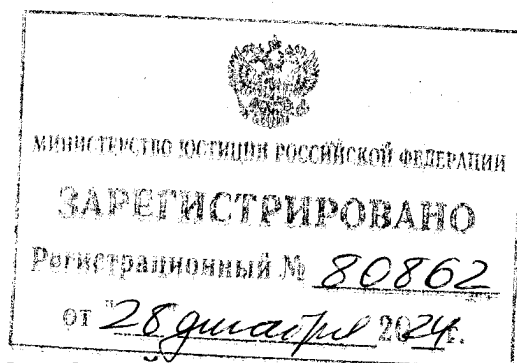 МИНИСТЕРСТВО ЮСТИЦИИ РОССИЙСКОЙ ФЕДЕРАЦИИ
ЗАРЕГИСТРИРОВАНО
Регистрационный № 80862
от "28 декабря 2024г.